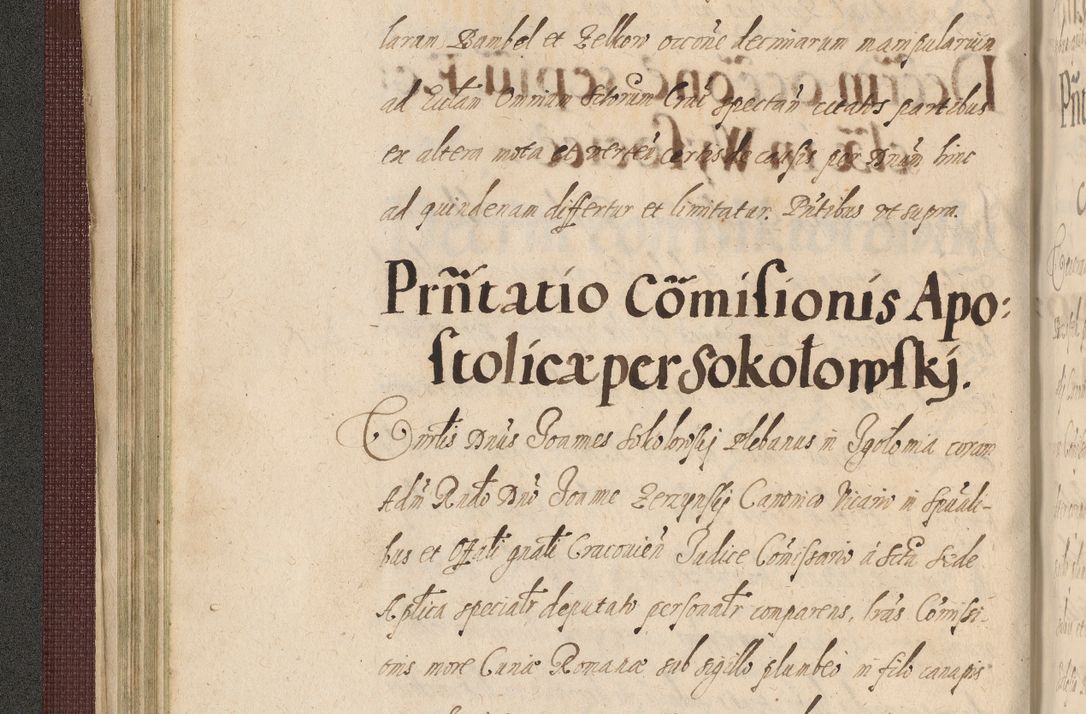 laram Bambel et Zelkow occõne decimarum manipularium
ad Ecclam Omnium Sctorum Crac̃ spectañ citatis partibus
ex altera mota et verteñ certis de causis per Dnũm hinc
ad quindenam differtur et limitatur. Pñtibus vt supra.
Prñtatio Cõmisionis Apo:
stolicæ per Sokołowskj.
Comptis Dnũs Joannes Sokolowskj Plebanus in Jgołomia coram
Adm̃ Rndo Dnõ Joanne Zerzynskj Canonico Vicario in Spũali-
bus et Offali gnali Cracovieñ Judice Com̃issario á Scta Sede
Aplica specialr deputato personalr comparens, lras Com̃issi-
onis more Curiæ Romanæ sub sigillo plumbeo in filo canapis